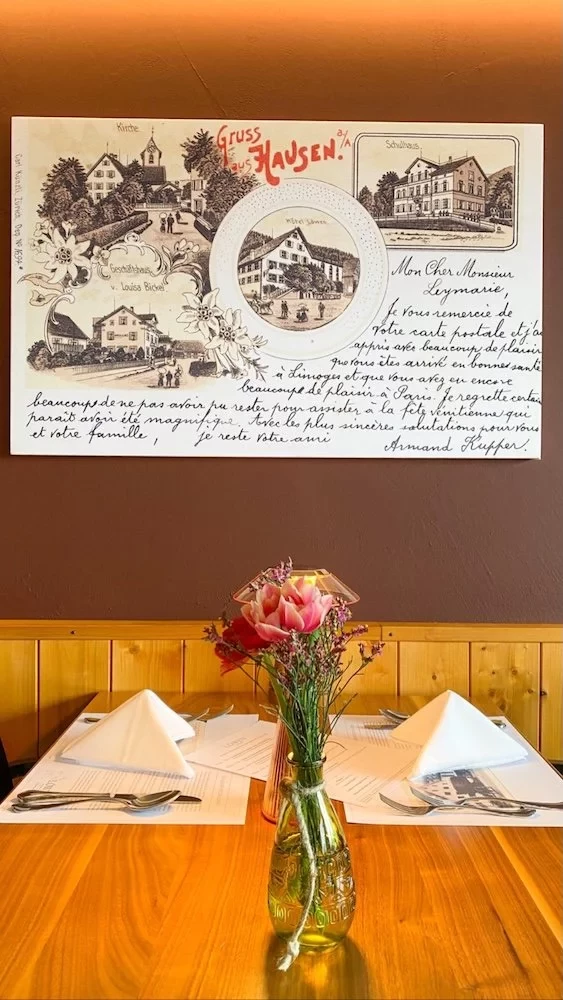 Kirche
Gruss
aus
HAUSEN.
a/A
Schulhaus.
Hôtel Löwen
Geschäftshaus
v. Louisa Bickel
Carl Künzli, Zürich. Dep. Nº
Mon Cher Monsieur
Leymarie,
Je vous remercie de
votre carte postale et j'ai
appris avec beaucoup de plaisir
que vous êtes arrivé en bonne santé
à Limoges et que vous avez eu encore
beaucoup de plaisir à Paris. Je regrette certain
beaucoup de ne pas avoir pu rester pour assister à la fête vénitienne qui
paraît avoir été magnifique. Avec les plus sincères salutations pour vous
et votre famille, je reste votre ami
Armand Kupper.